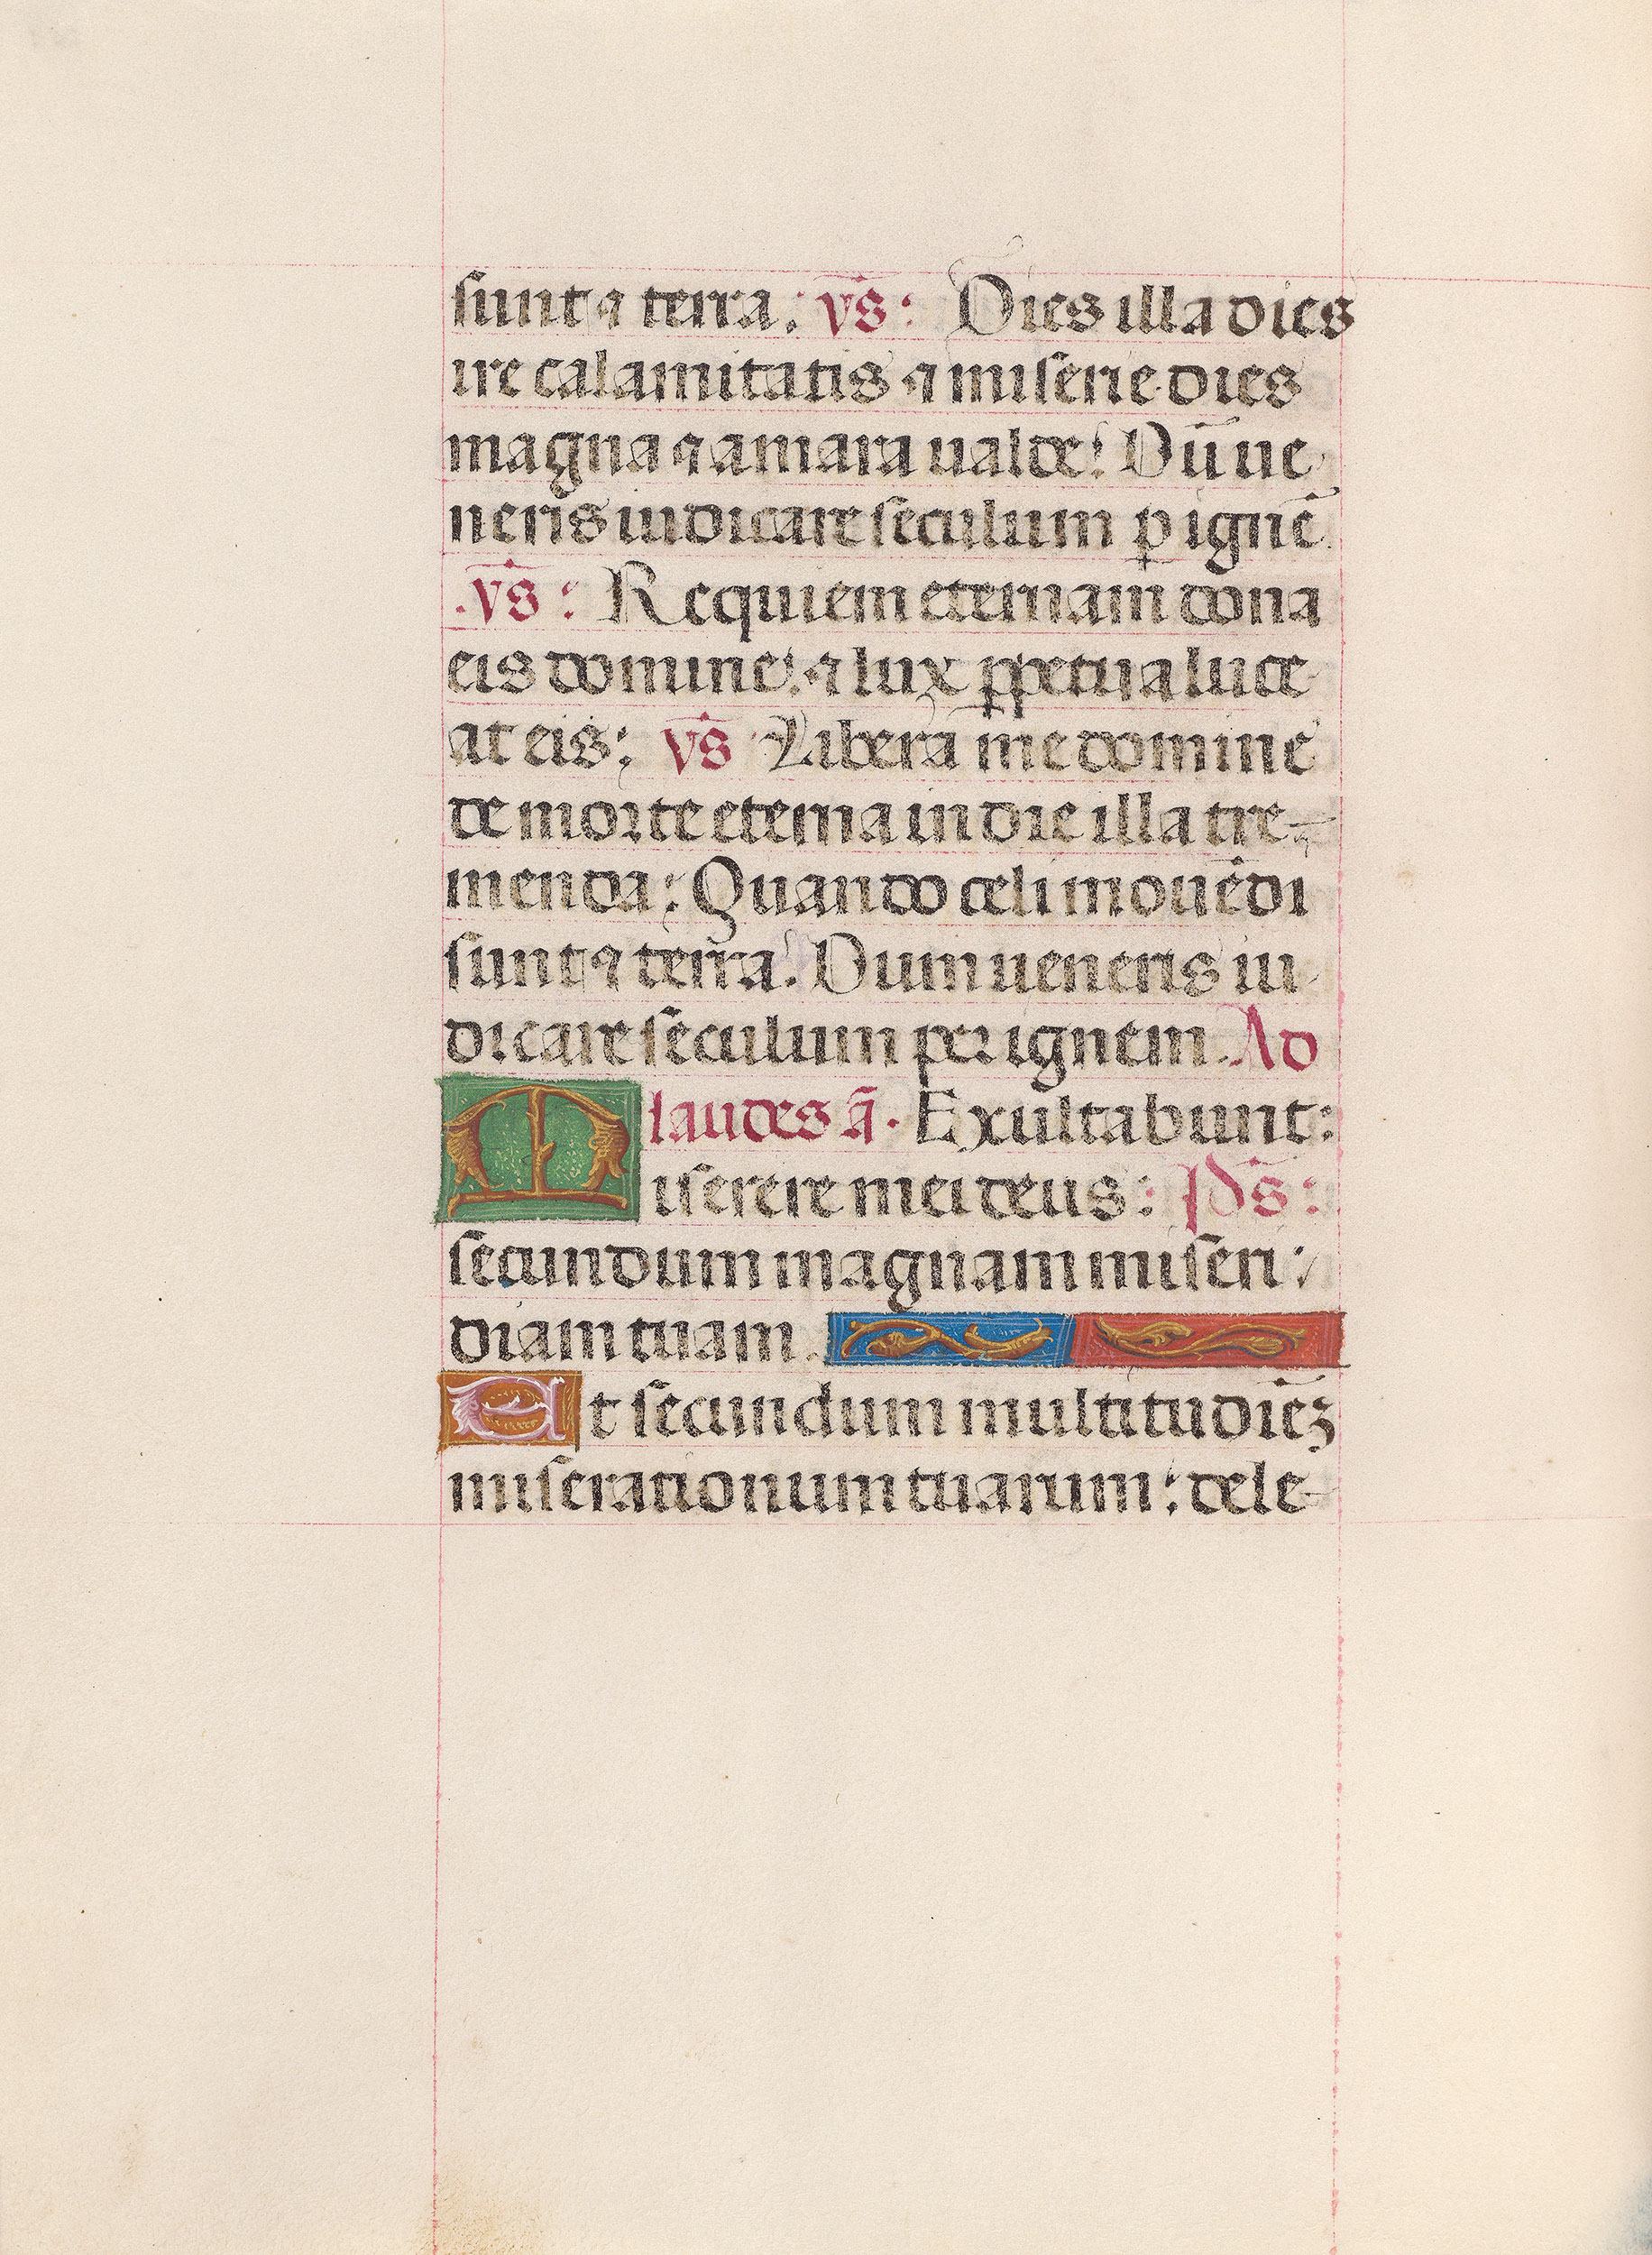 sunt ⁊ terra. v̄s: Dies illa dies
ire calamitatis ⁊ miserie dies
magna ⁊ amara ualde: Dū ue
neris iudicare seculum ꝑ ignē
.v̄s: Requiem eternam dona
eis domine: ⁊ lux ꝑpetua luce
at eis: v̄s Libera me domine
de morte eterna in die illa tre-
menda: Quando celi mouēdi
sunt ⁊ terra. Dum ueneris iu
dicare seculum per ignem. Ad
laudes ā. Exultabunt:
Miserere mei deus: Ps:
secundum magnam miseri:
diam tuam.
Et secundum multitudiēz
miserationum tuarum: dele-